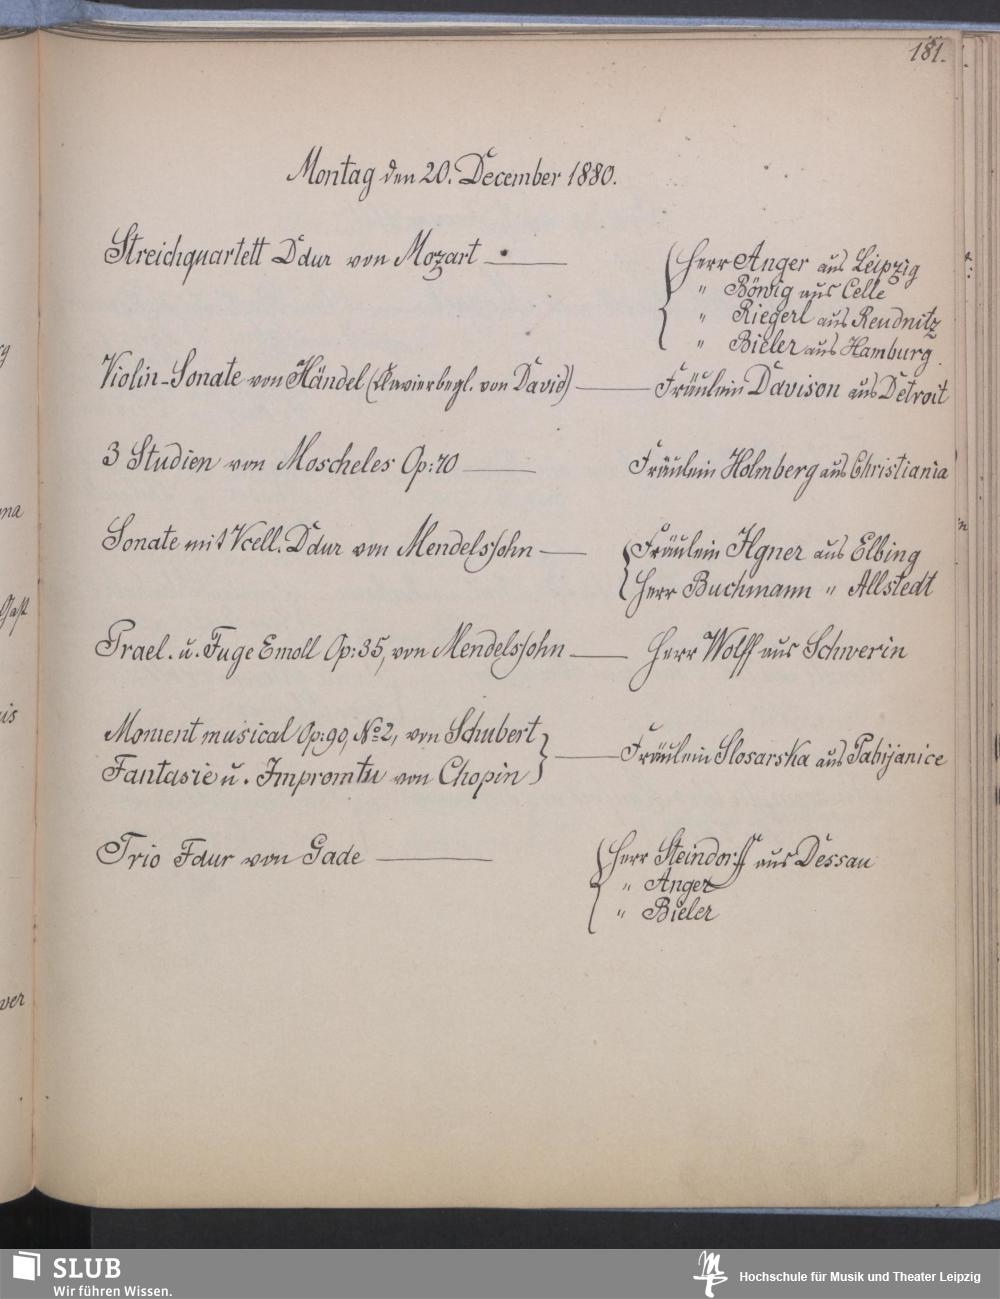 181.
Montag den 20. December 1880.
Streichquartett Ddur von Mozart
Herr Anger aus Leipzig
" Böwig aus Celle
" Riegerl aus Reudnitz
" Bieler aus Hamburg.
Violin-Sonate von Händel (Clavierbegl. von David)
Fräulein Davison aus Detroit
3 Studien von Moscheles Op: 70
Fräulein Holmberg aus Christiania
Sonate mit Vcell. Ddur von Mendelssohn
Fräulein Ilgner aus Elbing
Herr Buchmann " Allstedt
Prael. u. Fuge Emoll Op: 35, von Mendelssohn
Herr Wolff aus Schwerin
Moment musical Op: 90, No 2, von Schubert
Fantasie u. Impromtu von Chopin
Fräulein Slosarska aus Pabijanice
Trio Fdur von Gade
Herr Steindorff aus Dessau
" Anger
" Bieler
SLUB
Wir führen Wissen.
Hochschule für Musik und Theater Leipzig